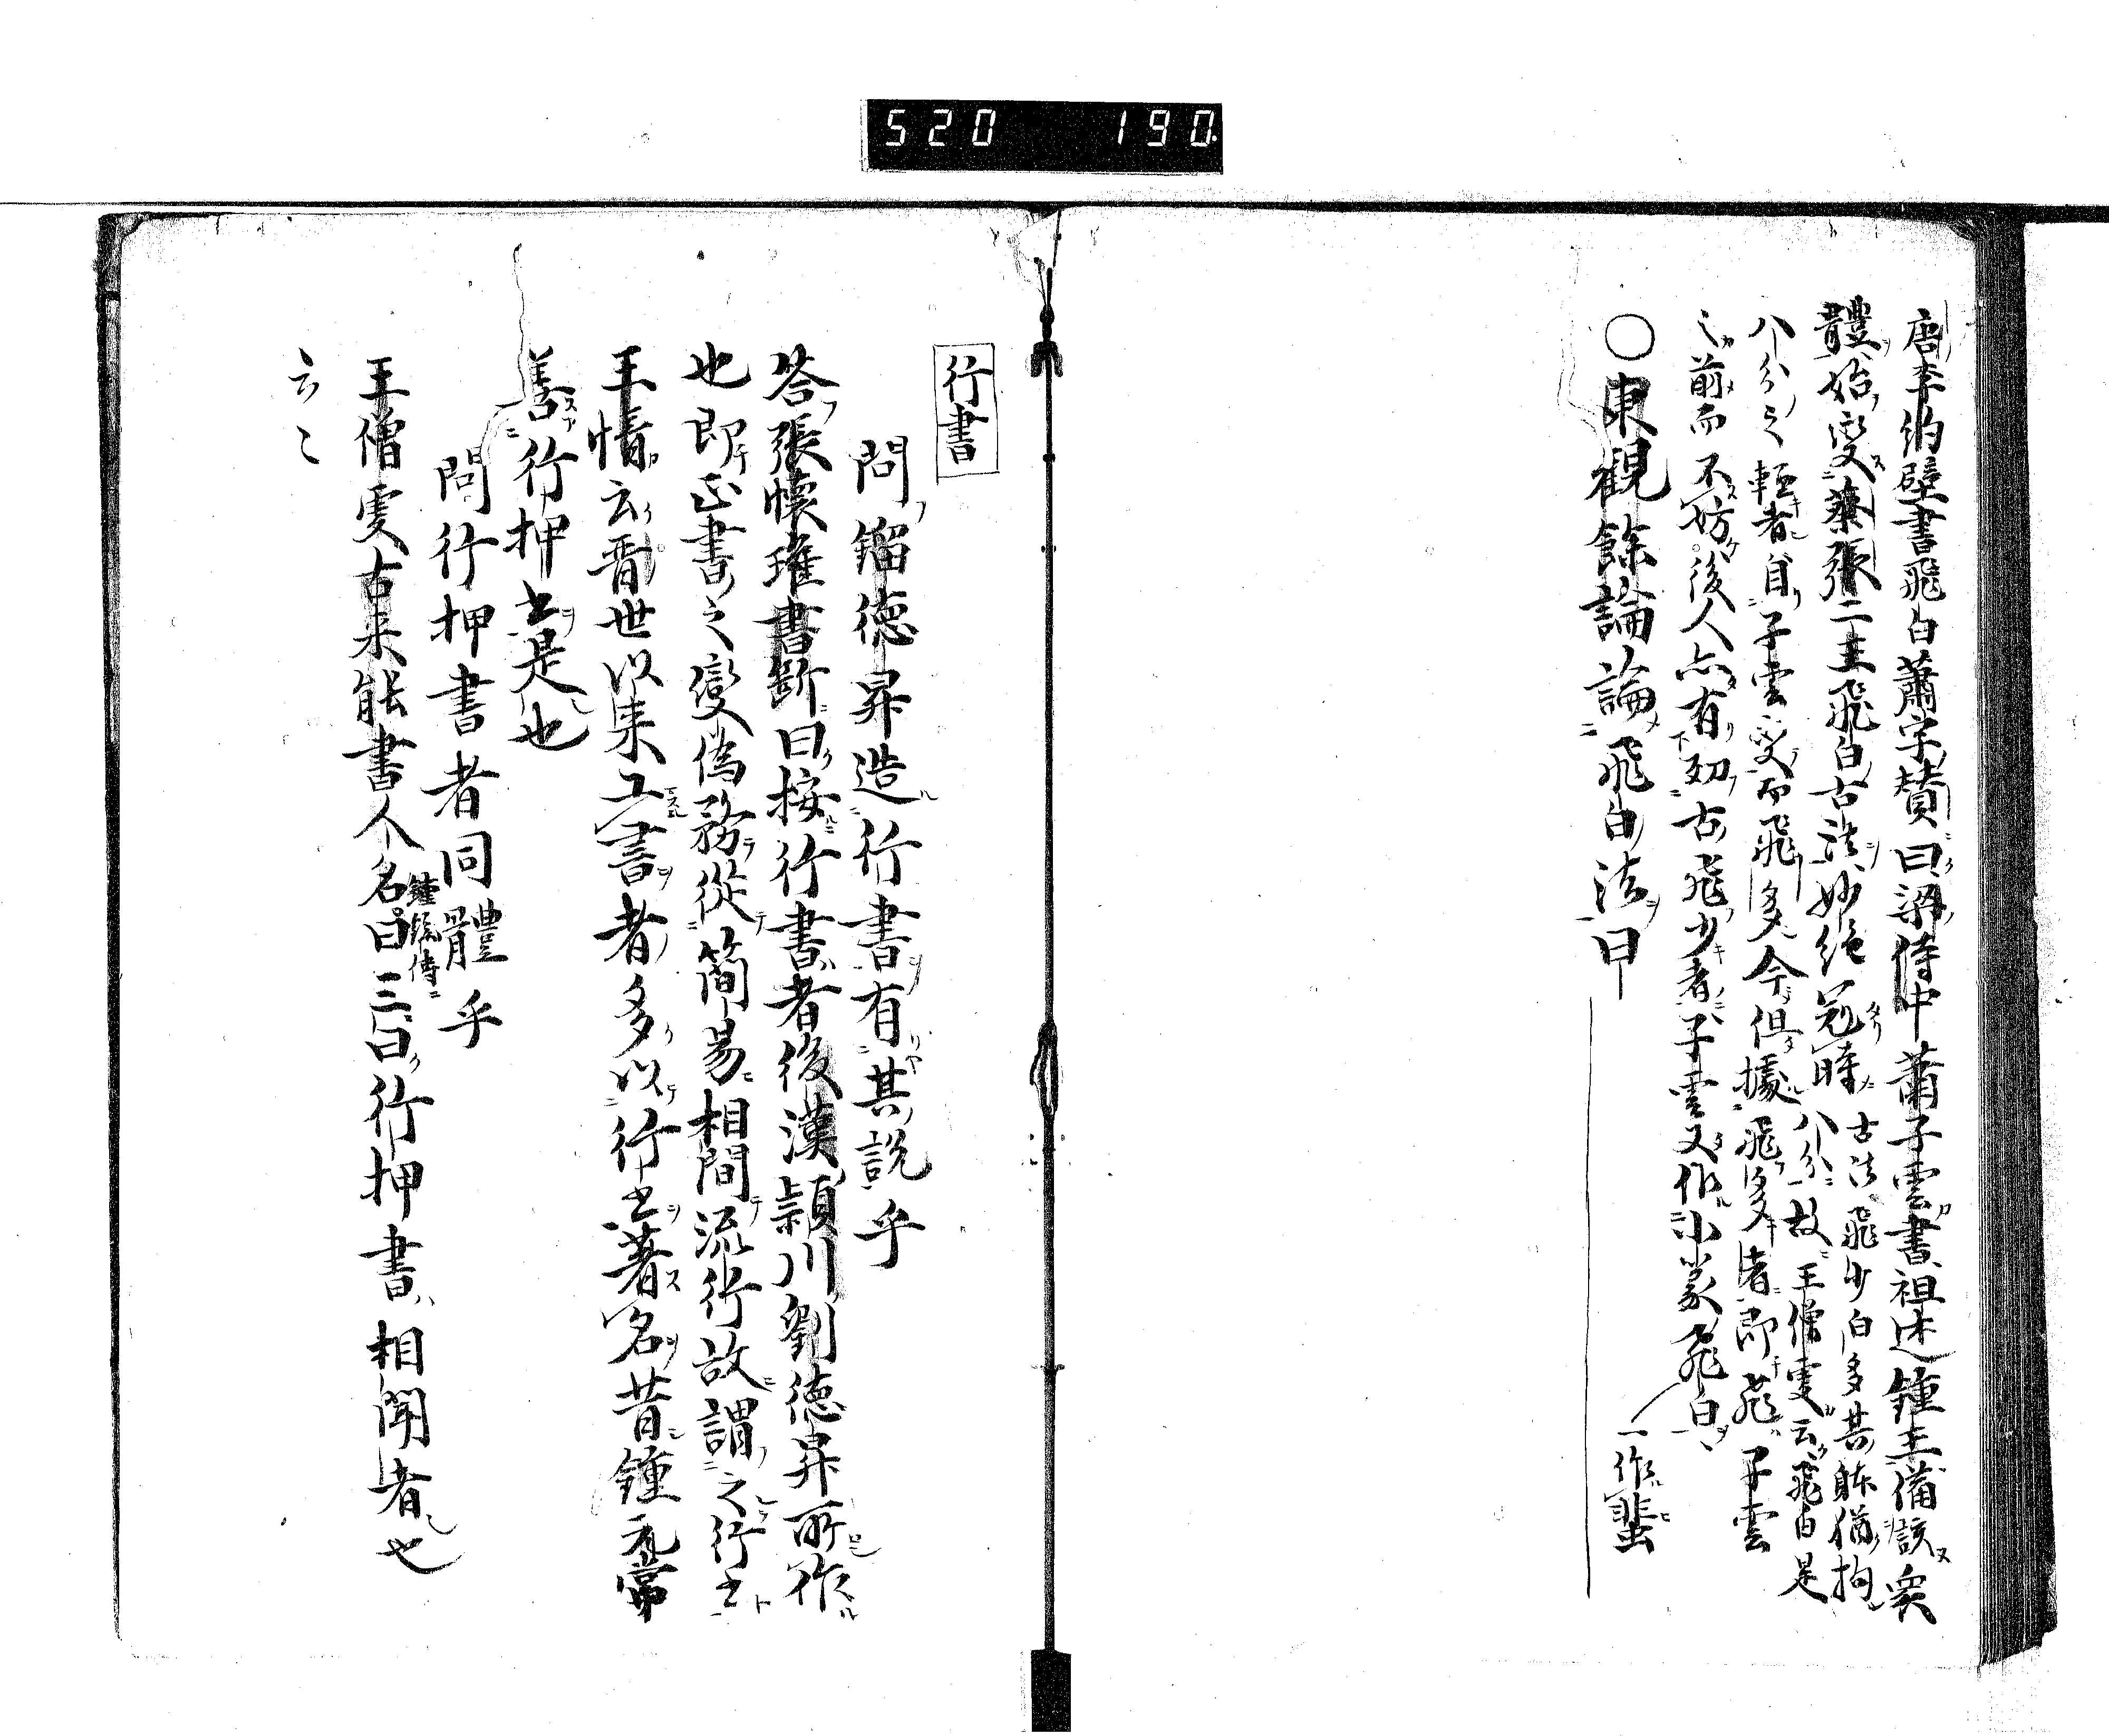 520 190
唐李約壁書飛白蕭字賛曰梁侍中蕭子雲書祖述鍾王備該矣
體始變蔡張二王飛白古法妙絶冠時
古法飛少白多其躰猶拘
八分故王僧虔云飛白是
八分之輕者自子雲變而飛多今但據飛多者即飛子雲
之前而不妨後人亦有効古飛少者子雲又作小篆飛白
一作蜚
○東観餘論論飛白法曰
行書
問鎦徳昇造行書有其説乎
答張懐瓘書斷曰按行書者後漢頴川劉徳昇所作
也即正書之變偽務從簡易相間流行故謂之行書
王愔云晋世以来工書者多以行書著名昔鍾元常
善行押書是也
問行押書者同體乎
王僧虔古来能書人名曰
鍾繇傳
三曰行押書相聞者也
云〻